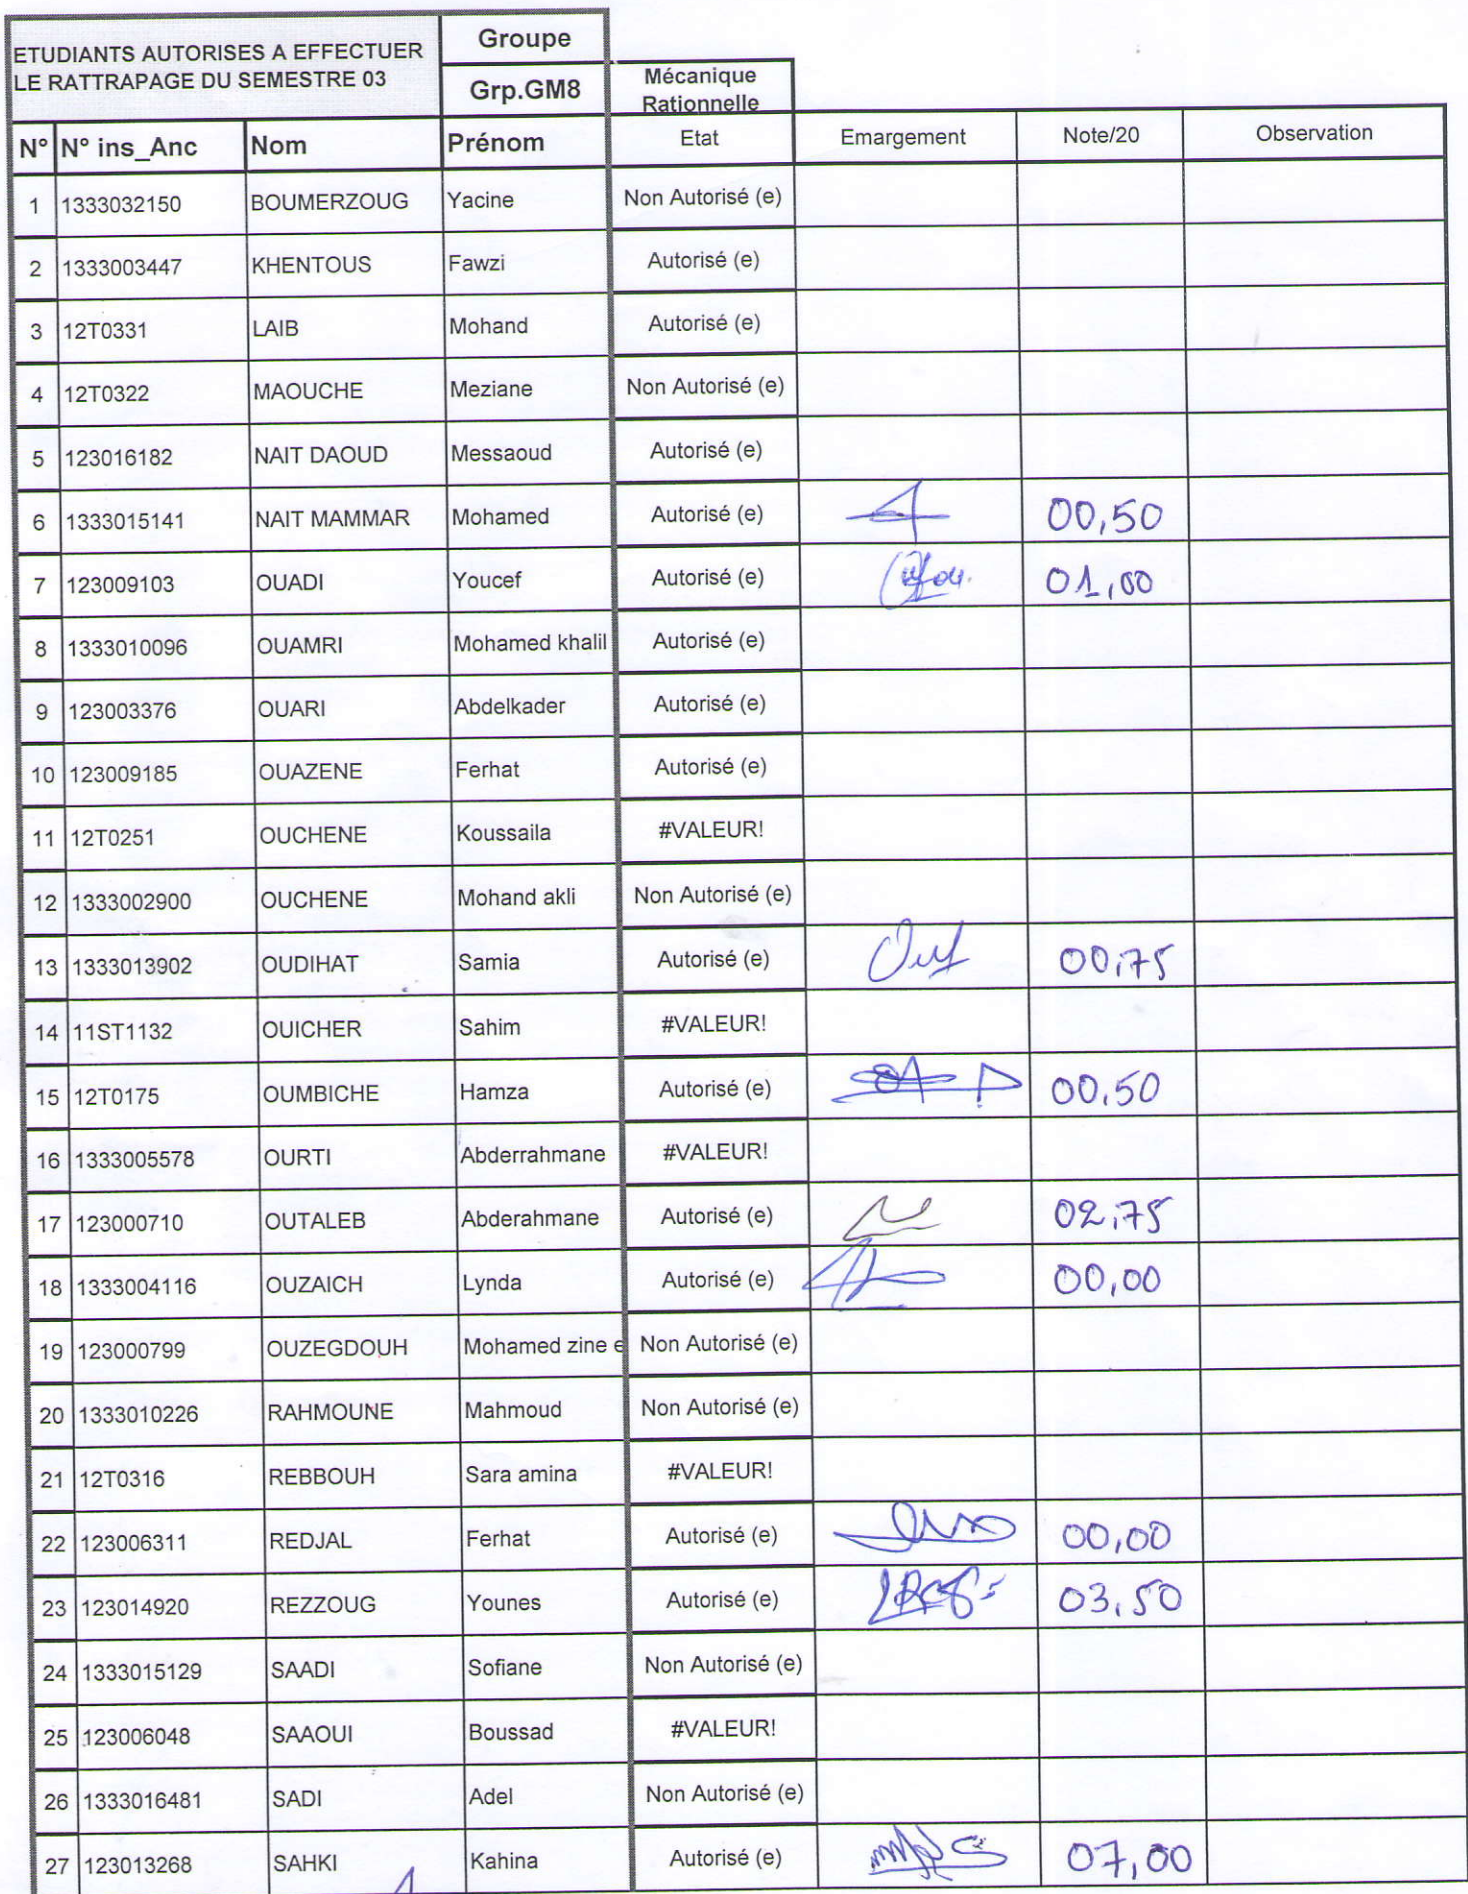 ETUDIANTS AUTORISES A EFFECTUER
LE RATTRAPAGE DU SEMESTRE 03
Groupe
Grp.GM8
Mécanique
Rationnelle
N° N° ins_Anc Nom Prénom Etat Emargement Note/20 Observation
1 1333032150 BOUMERZOUG Yacine Non Autorisé (e)
2 1333003447 KHENTOUS Fawzi Autorisé (e)
3 12T0331 LAIB Mohand Autorisé (e)
4 12T0322 MAOUCHE Meziane Non Autorisé (e)
5 123016182 NAIT DAOUD Messaoud Autorisé (e)
6 1333015141 NAIT MAMMAR Mohamed Autorisé (e) 00,50
7 123009103 OUADI Youcef Autorisé (e) 01,00
8 1333010096 OUAMRI Mohamed khalil Autorisé (e)
9 123003376 OUARI Abdelkader Autorisé (e)
10 123009185 OUAZENE Ferhat Autorisé (e)
11 12T0251 OUCHENE Koussaila #VALEUR!
12 1333002900 OUCHENE Mohand akli Non Autorisé (e)
13 1333013902 OUDIHAT Samia Autorisé (e) 00,75
14 11ST1132 OUICHER Sahim #VALEUR!
15 12T0175 OUMBICHE Hamza Autorisé (e) 00,50
16 1333005578 OURTI Abderrahmane #VALEUR!
17 123000710 OUTALEB Abderahmane Autorisé (e) 02,75
18 1333004116 OUZAICH Lynda Autorisé (e) 00,00
19 123000799 OUZEGDOUH Mohamed zine e Non Autorisé (e)
20 1333010226 RAHMOUNE Mahmoud Non Autorisé (e)
21 12T0316 REBBOUH Sara amina #VALEUR!
22 123006311 REDJAL Ferhat Autorisé (e) 00,00
23 123014920 REZZOUG Younes Autorisé (e) 03,50
24 1333015129 SAADI Sofiane Non Autorisé (e)
25 123006048 SAAOUI Boussad #VALEUR!
26 1333016481 SADI Adel Non Autorisé (e)
27 123013268 SAHKI Kahina Autorisé (e) 07,00